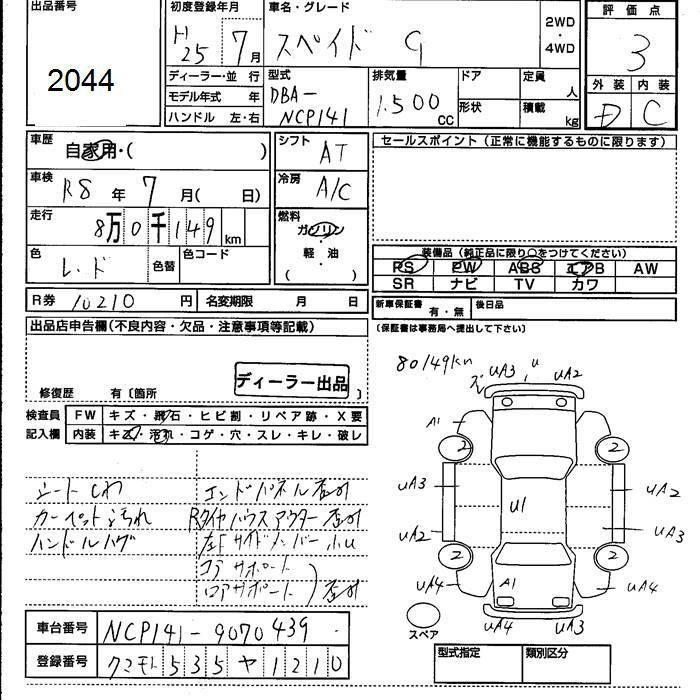 出品番号
2044
初度登録年月
H25 7月
車名・グレード
スペイド G
2WD
・
4WD
評価点
3
外装 内装
D C
ディーラー・並 行
モデル年式 年
ハンドル 左・右
型式
DBA-
NCP141
排気量
1.500 CC
ドア
形状
定員
人
積載
kg
車歴
自家用・( )
車検
R8 年 7 月( 日)
走行
8万0千149 km
色
レッド
色替
色コード
シフト
AT
冷房
A/C
燃料
ガソリン
・
軽・油
( )
セールスポイント(正常に機能するものに限ります)
装備品(純正品に限り○をつけてください)
PS PW ABS エアB AW
SR ナビ TV カワ
R券 10210 円 名変期限 月 日
新車保証書 有・無 後日品
(保証書は事務局へ提出して下さい)
出品店申告欄(不良内容・欠品・注意事項等記載)
ディーラー出品
修復歴 有〔箇所 〕
検査員
記入欄
FW キズ・飛石・ヒビ割・リペア跡・X要
内装 キズ・汚れ・コゲ・穴・スレ・キレ・破レ
シートしわ
カーペット汚れ
ハンドルハゲ
コアサポート
ロアサポート
80149km
UA3 U UA2
A1
2 2
UA3 U1 UA2
UA2 UA3
2 2
UA4 A1 UA4
UA4 UA3
スペア
車台番号 NCP141-9070439
登録番号 クマモト535ヤ1210
型式指定 類別区分